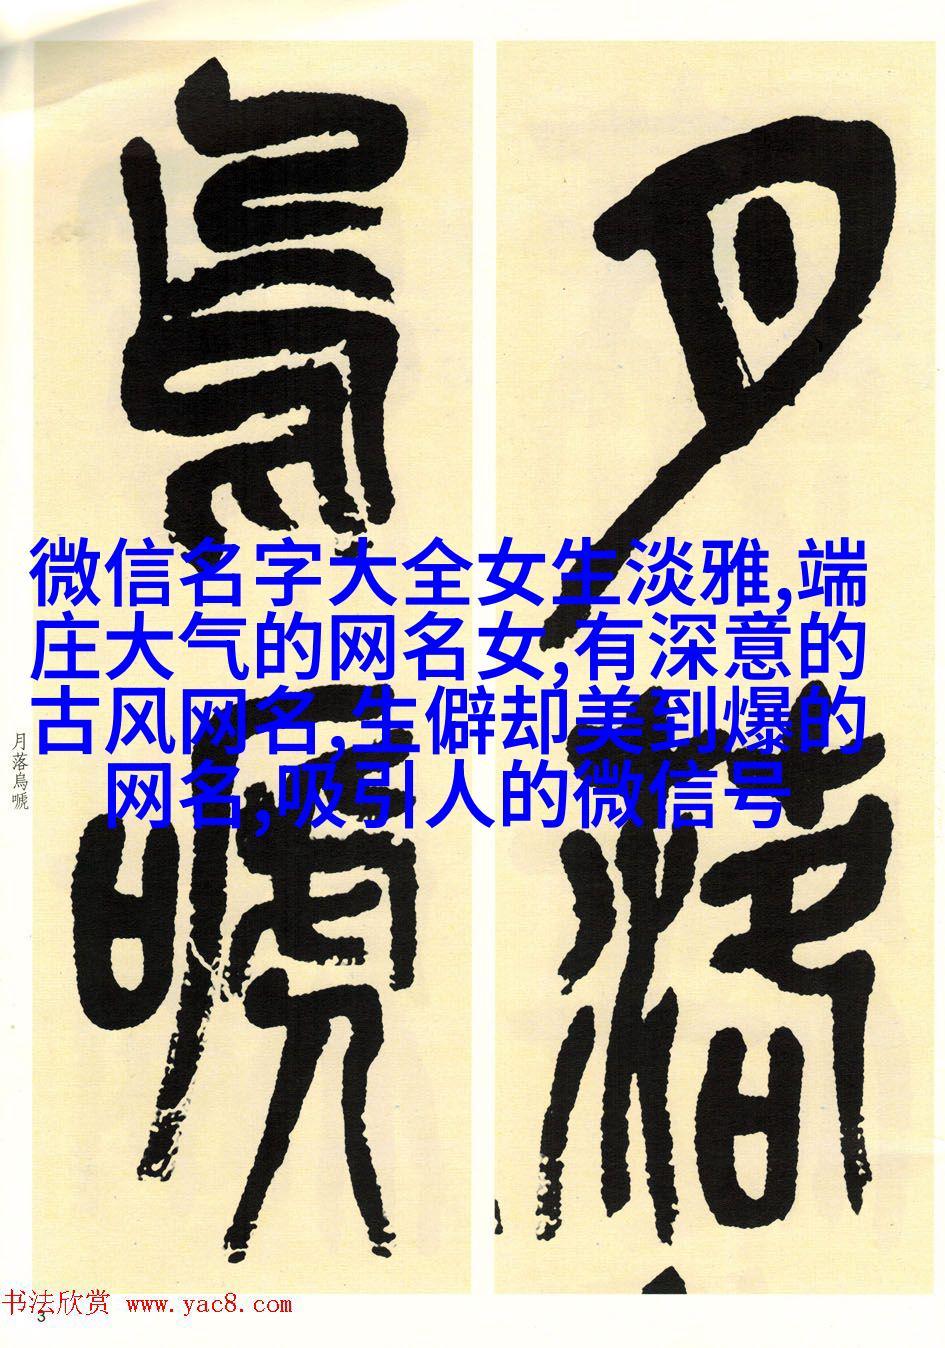 月落
烏嗁
微信名字大全女生淡雅,端
庄大气的网名女,有深意的
古风网名,生僻却美到爆的
网名,吸引人的微信号
月落烏嗁
书法欣赏 www.yac8.com
3